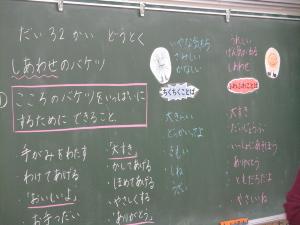 だい32かい どうとく
しあわせのバケツ
①
こころのバケツをいっぱいに
するために できること。
手がみをわたす
わけてあげる
・「おいしいよ」
・お手つだい
「大すき」
・かしてあげる
・ほめてあげる
・やさしくする
・「ありがとう」
いやな気もち
さみしい
かなしい
ちくちくことば
大きらい
どっかいってよ
きもい
しね
うざい
うれしい
げん気が出る
しあわせ
ふわふわことば
大すき
だいじょうぶ
いっしょにあそぼう
ありがとう
ともだちだよ
やさしいね